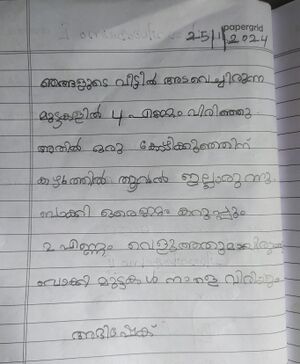 papergrid
25/1/2024
ഞങ്ങളുടെ വീട്ടിൽ അടവെച്ചിരുന്ന
മുട്ടകളിൽ 4 എണ്ണം വിരിഞ്ഞു
അതിൽ ഒരു കോഴികുഞ്ഞിന്
കഴുത്തിൽ തൂവൽ ഇല്ലാരുന്നു
ബാക്കി ഒരെണ്ണം കറുപ്പും
2 എണ്ണം വെളുത്തതുമായിരുന്നു
ബാക്കി മുട്ടകൾ നാളെ വിരിയും
അഭിഷേക്